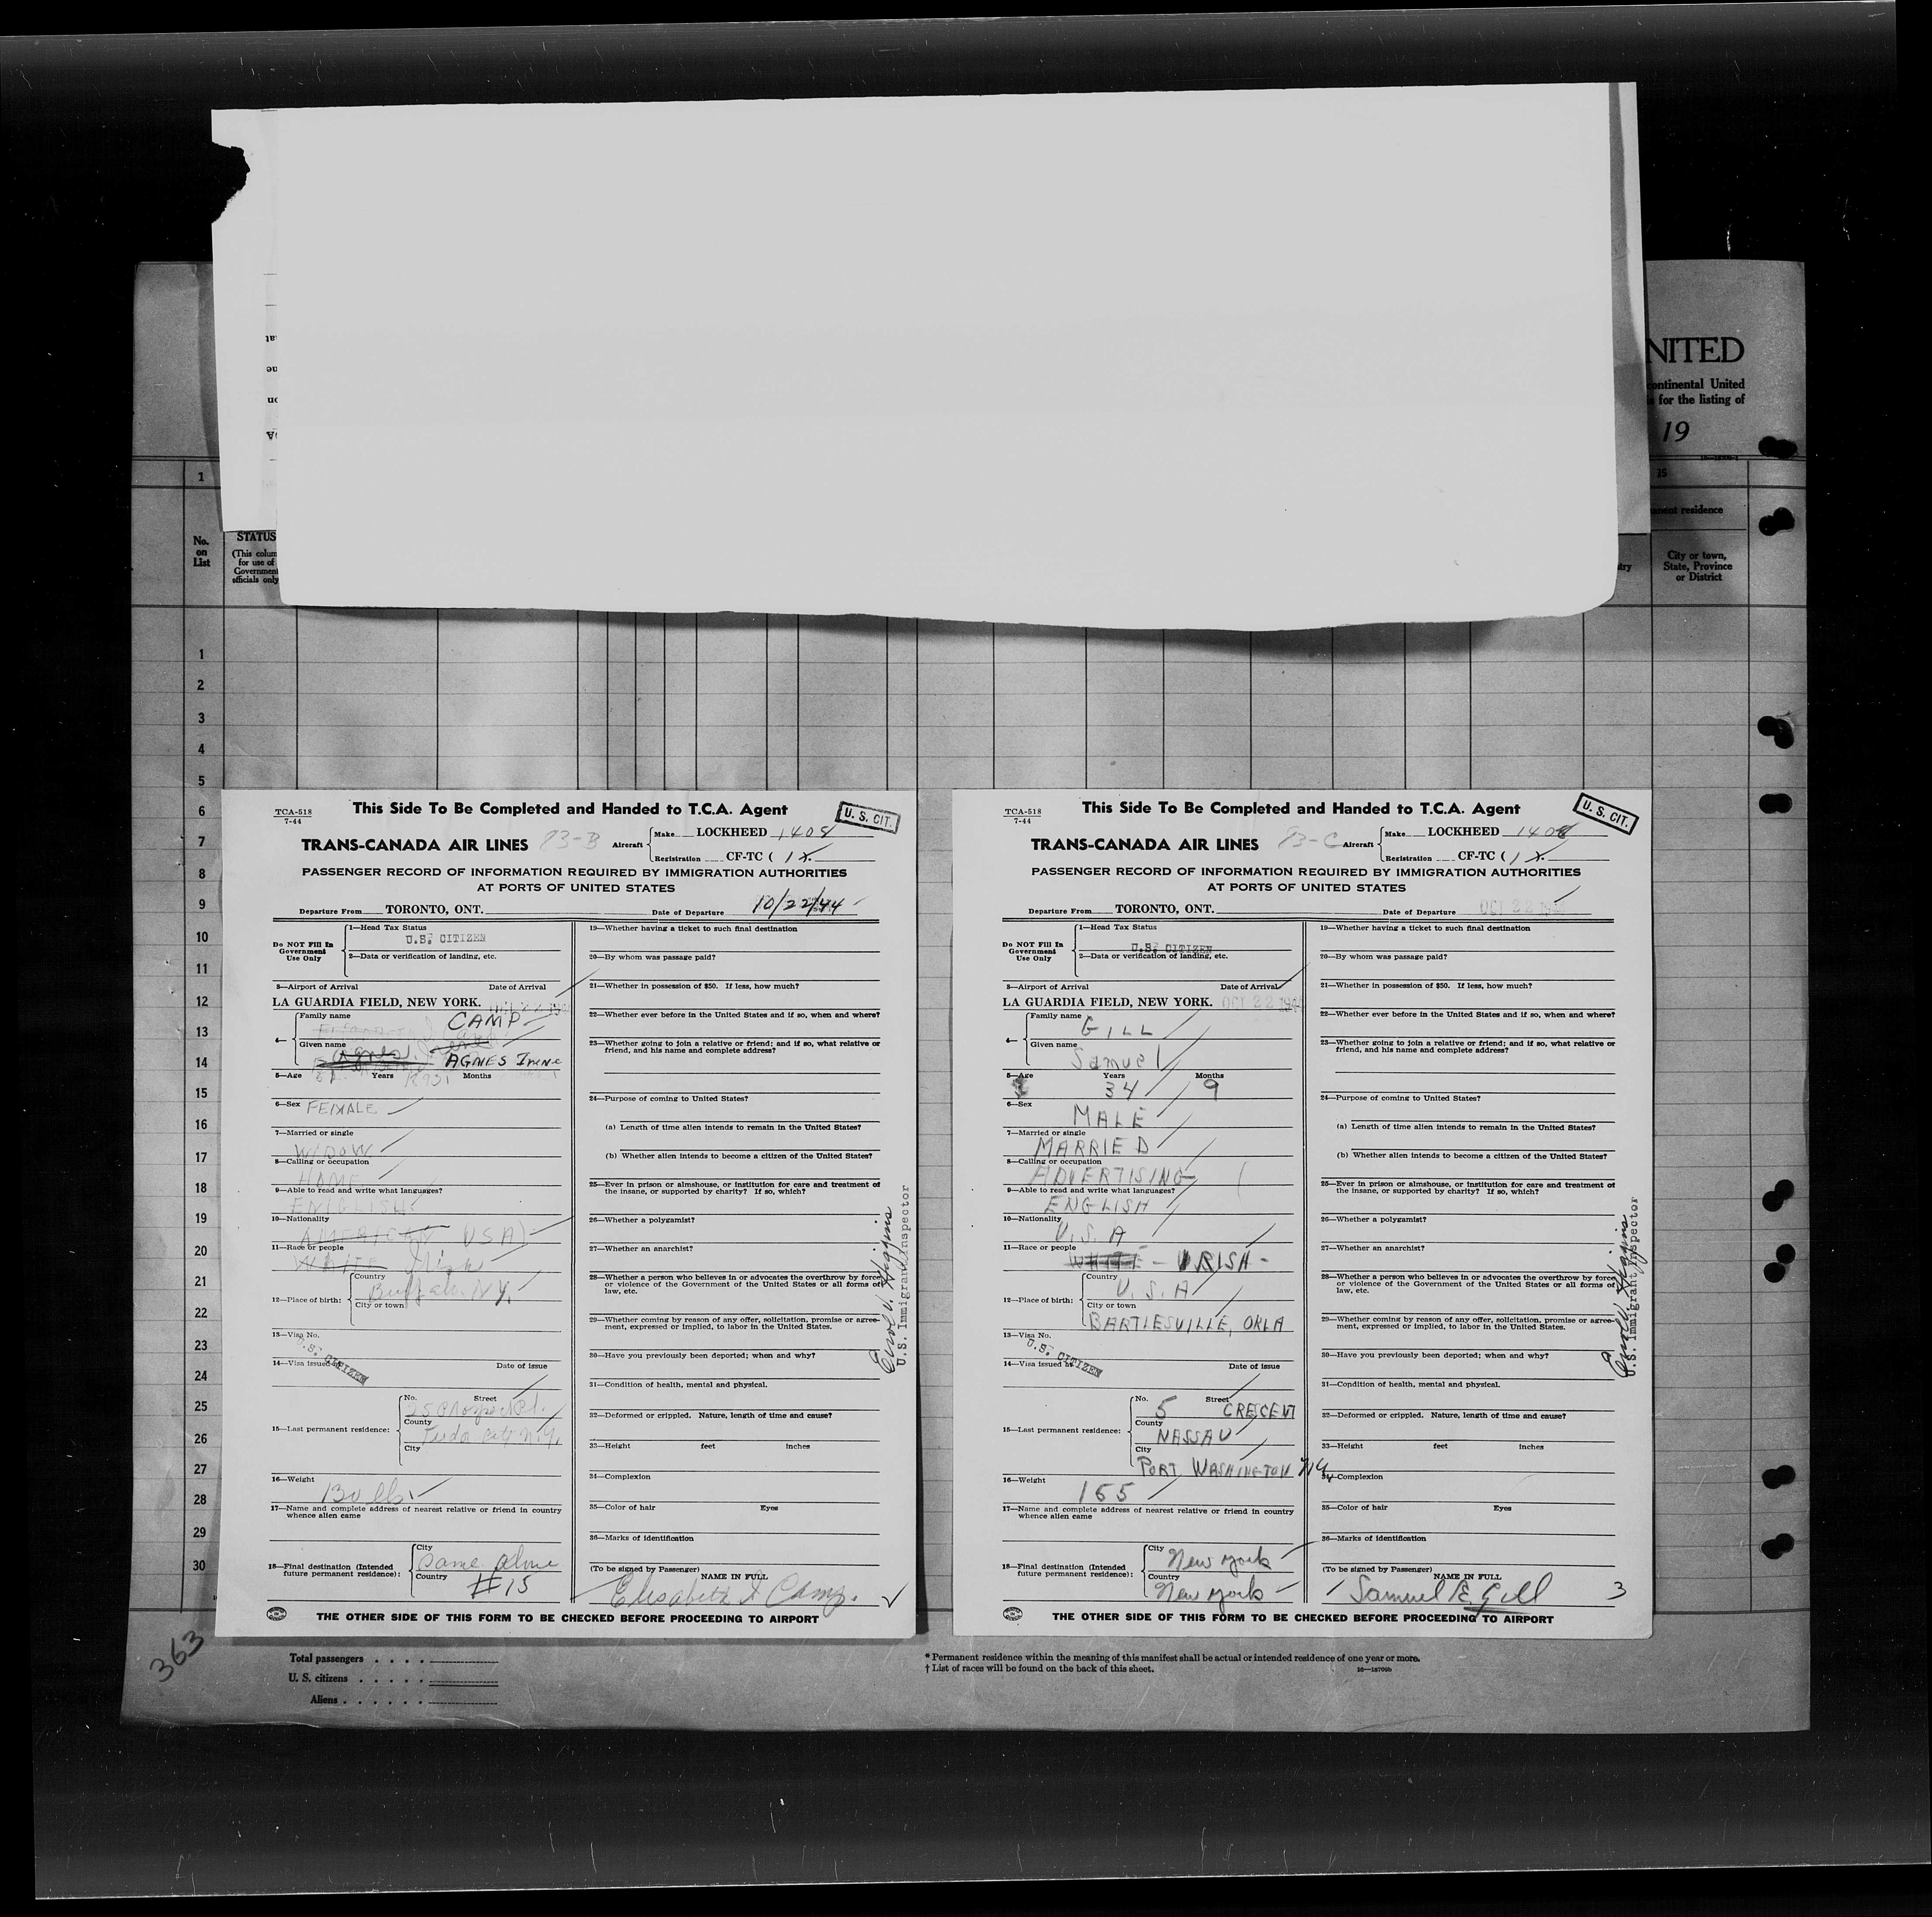 NITED
continental United
for the listing of
19
1
15
anent residence
No.
on
List
STATUS
(This colum
for use of
Government
officials only
try
City or town,
State, Province
or District
1
2
3
4
5
6
7
8
9
10
11
12
13
14
15
16
17
18
19
20
21
22
23
24
25
26
27
28
29
30
TCA-518
7-44
This Side To Be Completed and Handed to T.C.A. Agent
U. S. CIT.
TRANS-CANADA AIR LINES 83-B
Aircraft Make LOCKHEED 1408
Registration CF-TC (
PASSENGER RECORD OF INFORMATION REQUIRED BY IMMIGRATION AUTHORITIES
AT PORTS OF UNITED STATES
Departure From TORONTO, ONT. Date of Departure 10/22/44
Do NOT Fill In
Government
Use Only
1—Head Tax Status
U.S. CITIZEN
2—Data or verification of landing, etc.
3—Airport of Arrival Date of Arrival
LA GUARDIA FIELD, NEW YORK. OCT 22 194
4— Family name CAMP
Given name Agnes AGNES Irene
5—Age Years Months
6—Sex FEMALE
7—Married or single
WIDOW
8—Calling or occupation
HOME
9—Able to read and write what languages?
ENGLISH
10—Nationality
AMERICAN USA
11—Race or people
WHITE Irish
12—Place of birth: Country
Buffalo NY.
City or town
13—Visa No.
U.S. CITIZEN
14—Visa issued at Date of issue
15—Last permanent residence: No. Street
25 Prospect Pl.
County
Tudor City N.Y.
City
16—Weight
130 lbs.
17—Name and complete address of nearest relative or friend in country
whence alien came
18—Final destination (Intended
future permanent residence):
City
same
Country
#15
19—Whether having a ticket to such final destination
20—By whom was passage paid?
21—Whether in possession of $50. If less, how much?
22—Whether ever before in the United States and if so, when and where?
23—Whether going to join a relative or friend; and if so, what relative or
friend, and his name and complete address?
24—Purpose of coming to United States?
(a) Length of time alien intends to remain in the United States?
(b) Whether alien intends to become a citizen of the United States?
25—Ever in prison or almshouse, or institution for care and treatment of
the insane, or supported by charity? If so, which?
26—Whether a polygamist?
27—Whether an anarchist?
28—Whether a person who believes in or advocates the overthrow by force
or violence of the Government of the United States or all forms of
law, etc.
29—Whether coming by reason of any offer, solicitation, promise or agree-
ment, expressed or implied, to labor in the United States.
30—Have you previously been deported; when and why?
31—Condition of health, mental and physical.
32—Deformed or crippled. Nature, length of time and cause?
33—Height feet inches
34—Complexion
35—Color of hair Eyes
36—Marks of identification
(To be signed by Passenger)
NAME IN FULL
Elisabeth I Camp.
Higgins
U.S. Immigrant Inspector
THE OTHER SIDE OF THIS FORM TO BE CHECKED BEFORE PROCEEDING TO AIRPORT
TCA-518
7-44
This Side To Be Completed and Handed to T.C.A. Agent
U. S. CIT.
TRANS-CANADA AIR LINES 83-C
Aircraft Make LOCKHEED 1408
Registration CF-TC (
PASSENGER RECORD OF INFORMATION REQUIRED BY IMMIGRATION AUTHORITIES
AT PORTS OF UNITED STATES
Departure From TORONTO, ONT. Date of Departure OCT 22
Do NOT Fill In
Government
Use Only
1—Head Tax Status
U.S. CITIZEN
2—Data or verification of landing, etc.
3—Airport of Arrival Date of Arrival
LA GUARDIA FIELD, NEW YORK. OCT 22 194
4— Family name
GILL
Given name
Samuel
5—Age Years Months
34 9
6—Sex
MALE
7—Married or single
MARRIED
8—Calling or occupation
ADVERTISING
9—Able to read and write what languages?
ENGLISH
10—Nationality
U.S.A
11—Race or people
WHITE - IRISH -
12—Place of birth: Country
U.S.A
City or town
BARTLESVILLE, OKLA
13—Visa No.
U.S. CITIZEN
14—Visa issued at Date of issue
15—Last permanent residence: No. Street
5 CRESCENT
County
NASSAU
City
PORT WASHINGTON NY
16—Weight
155
17—Name and complete address of nearest relative or friend in country
whence alien came
18—Final destination (Intended
future permanent residence):
City
New York
Country
New York
19—Whether having a ticket to such final destination
20—By whom was passage paid?
21—Whether in possession of $50. If less, how much?
22—Whether ever before in the United States and if so, when and where?
23—Whether going to join a relative or friend; and if so, what relative or
friend, and his name and complete address?
24—Purpose of coming to United States?
(a) Length of time alien intends to remain in the United States?
(b) Whether alien intends to become a citizen of the United States?
25—Ever in prison or almshouse, or institution for care and treatment of
the insane, or supported by charity? If so, which?
26—Whether a polygamist?
27—Whether an anarchist?
28—Whether a person who believes in or advocates the overthrow by force
or violence of the Government of the United States or all forms of
law, etc.
29—Whether coming by reason of any offer, solicitation, promise or agree-
ment, expressed or implied, to labor in the United States.
30—Have you previously been deported; when and why?
31—Condition of health, mental and physical.
32—Deformed or crippled. Nature, length of time and cause?
33—Height feet inches
34—Complexion
35—Color of hair Eyes
36—Marks of identification
(To be signed by Passenger)
NAME IN FULL
Samuel E. Gill 3
Higgins
U.S. Immigrant Inspector
THE OTHER SIDE OF THIS FORM TO BE CHECKED BEFORE PROCEEDING TO AIRPORT
363
Total passengers
U. S. citizens
Aliens
* Permanent residence within the meaning of this manifest shall be actual or intended residence of one year or more.
† List of races will be found on the back of this sheet.